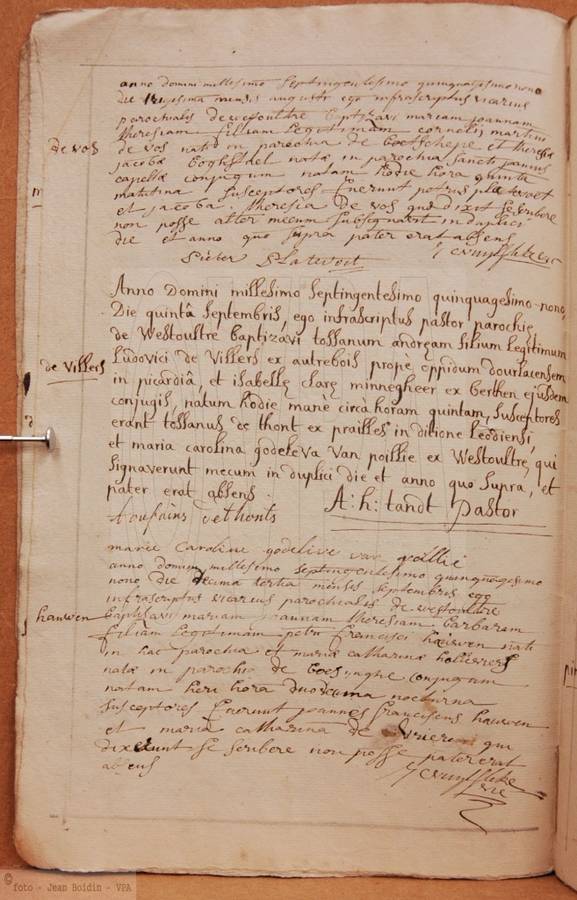 anno domini millesimo septingentesimo quinquagesimo nono
die trigesima mensis augusti ego infrascriptus vicarius
parochialis de westoultre baptizavi mariam joannam
theresiam filiam legitimam cornelii martini
de vos
de vos nati in parochia de boesschepe et theresiæ
jacobæ natæ in parochia sancti
capellæ conjugum natam hodie hora quinta
matutina susceptores fuerunt petrus
et jacoba theresia de vos quæ dixit se scribere
non posse alter mecum subsignavit in duplici
die et anno quo supra pater erat absens
Pieter
Anno Domini millesimo septingentesimo quinquagesimo-nono,
Die quintâ septembris, ego infrascriptus pastor parochiæ
de Westoultre baptizavi tossanum andream filium legitimum
de Villers
Ludovici de Villers ex autrebois propè oppidum dourlacensem
in picardiâ, et isabellæ claræ minnegheer ex berthen ejusdem
conjugis, natum hodie mane circà horam quintam, susceptores
erant tossanus de thont ex prailles in ditione Leodiensi,
et maria carolina godeleva Van poillie ex Westoultre, qui
signaverunt mecum in duplici die et anno quo supra, et
pater erat absens.
A: h: tandt Pastor
toussains dethonts
marie Caroline godelive van poillie
anno domini millesimo septingentesimo quinquagesimo
nono die decima tertia mensis septembris ego
infrascriptus vicarius parochialis de westoultre
hauwen
baptizavi mariam joannam theresiam barbaram
filiam legitimam petri francisci hauwen nati
in hac parochia et mariæ catharinæ
natæ in parochia de boesinghe conjugum
natam heri hora duodecima nocturna
susceptores fuerunt joannes franciscus hauwen
et maria catharina de qui
dixerunt se scribere non posse pater erat
absens
© foto - Jean Boidin - VPA